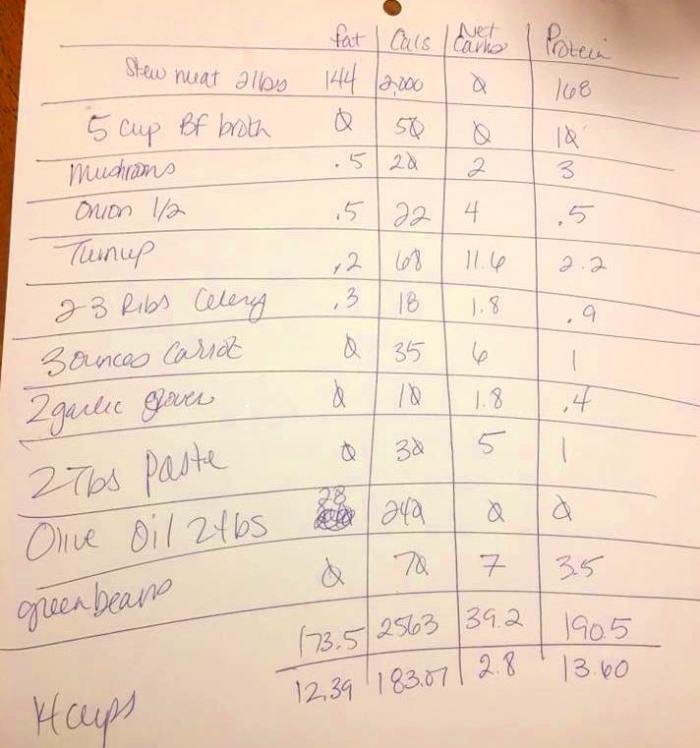 fat Cals Net Carbs Protein
Stew meat 2lbs 144 2,000 0 168
5 cup BF broth 0 50 0 10
mushroms .5 20 2 3
Onion 1/2 .5 22 4 .5
Turnup .2 68 11.6 2.2
2-3 Ribs Celery .3 18 1.8 .9
3 ounces Carrot 0 35 6 1
2 garlic gloves 0 10 1.8 .4
2 Tbs paste 0 30 5 1
Olive Oil 2 tbs 28 240 0 0
greenbeans 0 70 7 3.5
173.5 2563 39.2 190.5
14 cups 12.39 183.07 2.8 13.60